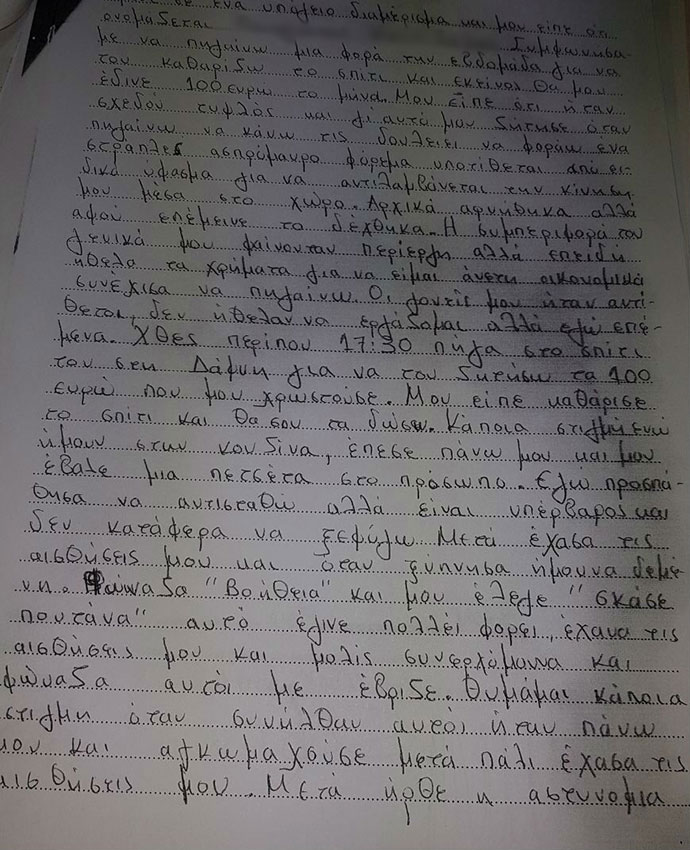 σε ένα υπόγειο διαμέρισμα και μου είπε ότι
ονομάζεται Συμφώνησα-
με να πηγαίνω μια φορά την εβδομάδα για να
του καθαρίζω το σπίτι και εκείνος θα μου
έδινε 100 ευρω το μήνα. Μου είπε ότι ήταν
σχεδόν τυφλός και γι αυτό μου ζήτησε όταν
πηγαίνω να κάνω τις δουλειές να φοράω ένα
στράπλες ασπρόμαυρο φόρεμα υποτίθεται από ει-
δικό ύφασμα για να αντιλαμβάνεται την κίνηση
μου μέσα στο χώρο. Αρχικά αρνήθηκα αλλά
αφού επέμεινε το δέχθηκα. Η συμπεριφορά του
γενικά μου φαίνονταν περίεργη αλλά επειδή
ήθελα τα χρήματα για να είμαι άνετη οικονομικά
συνέχισα να πηγαίνω. Οι γονείς μου ήταν αντί-
θετοι, δεν ήθελαν να εργάζομαι αλλά εγώ επέ-
μενα. Χθες περίπου 17:30 πήγα στο σπίτι
του στη Δάφνη για να του ζητήσω τα 100
ευρώ που μου χρωστούσε. Μου είπε καθάρισε
το σπίτι και θα σου τα δώσω. Κάποια στιγμή ενώ
ήμουν στην κουζίνα, έπεσε πάνω μου και μου
έβαλε μια πετσέτα στο πρόσωπο. Εγώ προσπά-
θησα να αντισταθώ αλλά είναι υπέρβαρος και
δεν κατάφερα να ξεφύγω Μετά έχασα τις
αισθήσεις μου και όταν ξύπνησα ήμουνα δεμέ-
νη. Φώναζα "Βοήθεια" και μου έλεγε "σκάσε
πουτάνα" αυτό έγινε πολλές φορές, έχανα τις
αισθήσεις μου και μόλις συνερχόμουνα και
φώναζα αυτός με έβριζε. Θυμάμαι κάποια
στιγμή όταν συνήλθα αυτός ήταν πάνω
μου και αγκωμαχούσε μετά πάλι έχασα τις
αισθήσεις μου. Μετά ήρθε η αστυνομία